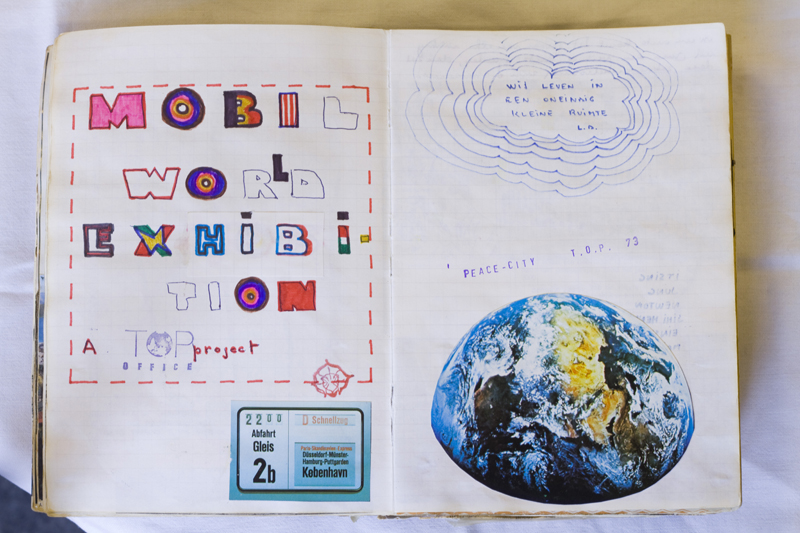 MOBIL
WORLD
EXHIBI-
TION
A TOP project
OFFICE
22 00 D Schnellzug
Abfahrt
Gleis
2b
Düsseldorf-Münster-
Hamburg-Puttgarden
København
WIJ LEVEN IN
EEN ONEINDIG
KLEINE RUIMTE
PEACE-CITY T.O.P. 73